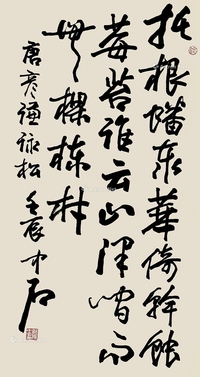 托根蟠泰華倚幹蝕
莓苔誰云山澤間而
無樑棟材
唐彥謙詠松 壬辰 中石